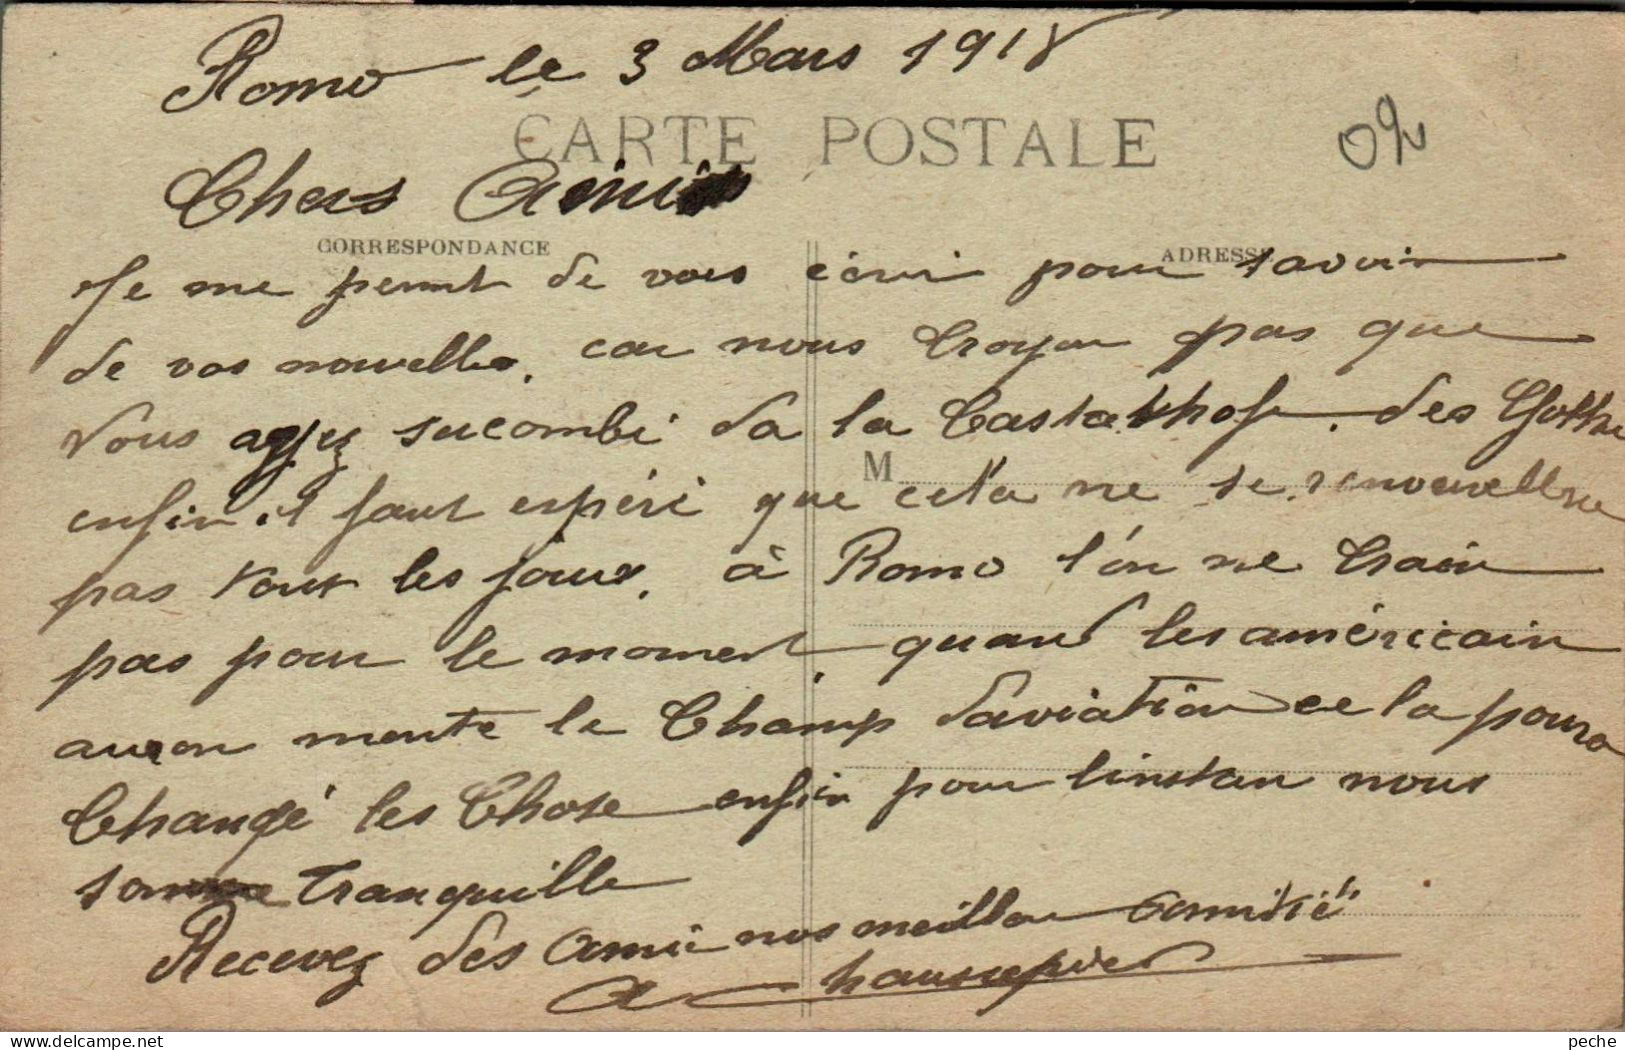 Romo le 3 Mars 1918
CARTE POSTALE
Chers Amis
CORRESPONDANCE
ADRESSE
Je me permt de vous écrui pour savoir
de vos nouvelles. car nous croyon pas que
Vous ayez sucombé da la Castatkhofe. des Gotha
M
enfin il faut espéré que cela ne se renouvuellera
pas tout les jours. à Romo l'on ne crain
pas pour le moment quand les américain
auron monté le Champ d'aviation ce la poura
Changé les Chose enfin pour linstan nous
somme tranquille
Recevez des Ami nos meilleu amitié
A Chaussepied
02
peche